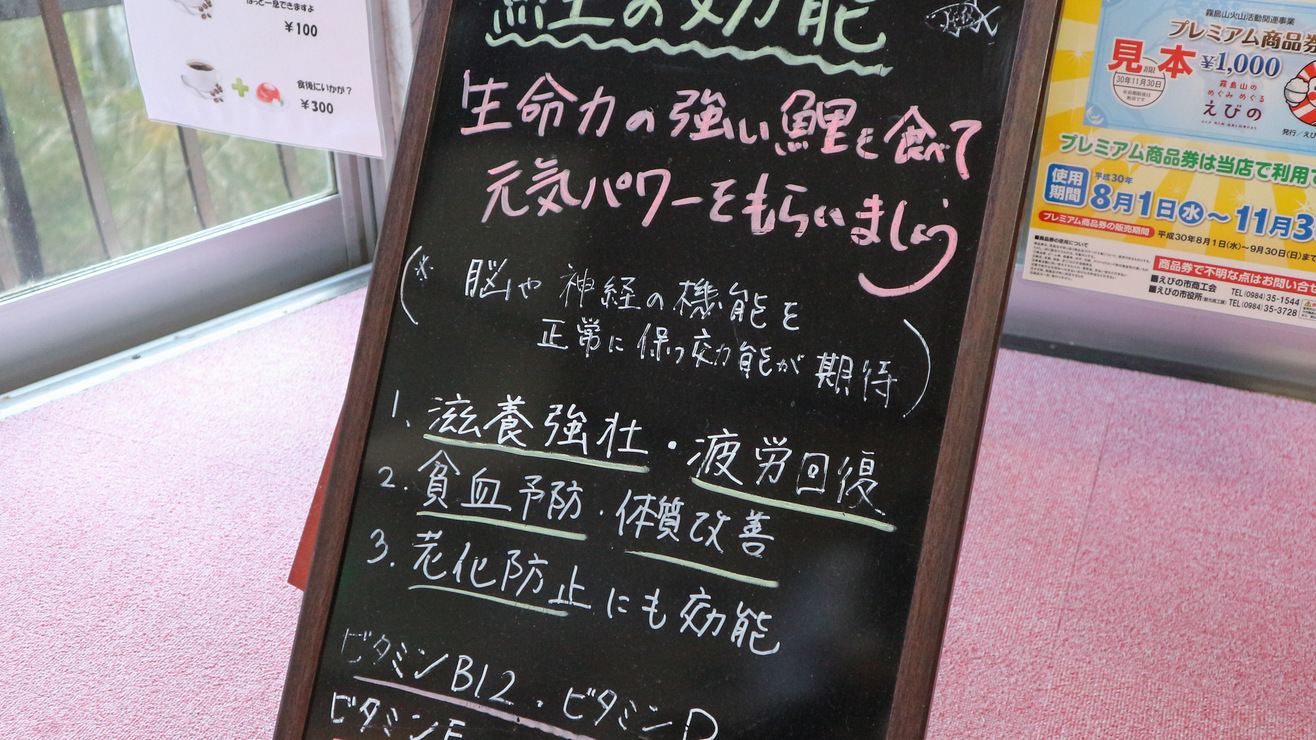 ほっと一息できますよ
¥100
食後にいかが?
¥300
鯉の効能
生命力の強い鯉を食べて
元気パワーをもらいましょう
(* 脳や神経の機能を
正常に保つ効能が期待)
1. 滋養強壮・疲労回復
2. 貧血予防・体質改善
3. 老化防止にも効能
ビタミンB12・ビタミンD
ビタミンE
霧島山火山活動関連事業
プレミアム商品券
見本
¥1,000
30年11月30日
霧島山の
めぐみめぐる
えびの
発行/えび
プレミアム商品券は当店で利用で
使用期間
平成30年
8月1日(水)~11月3
プレミアム商品券の販売期間
平成30年8月1日(水)~9月30日(日)まで
■商品券の使用について
商品券で不明な点はお問い合せ
■えびの市商工会 TEL(0984)35-1544
■えびの市役所 TEL(0984)35-3728